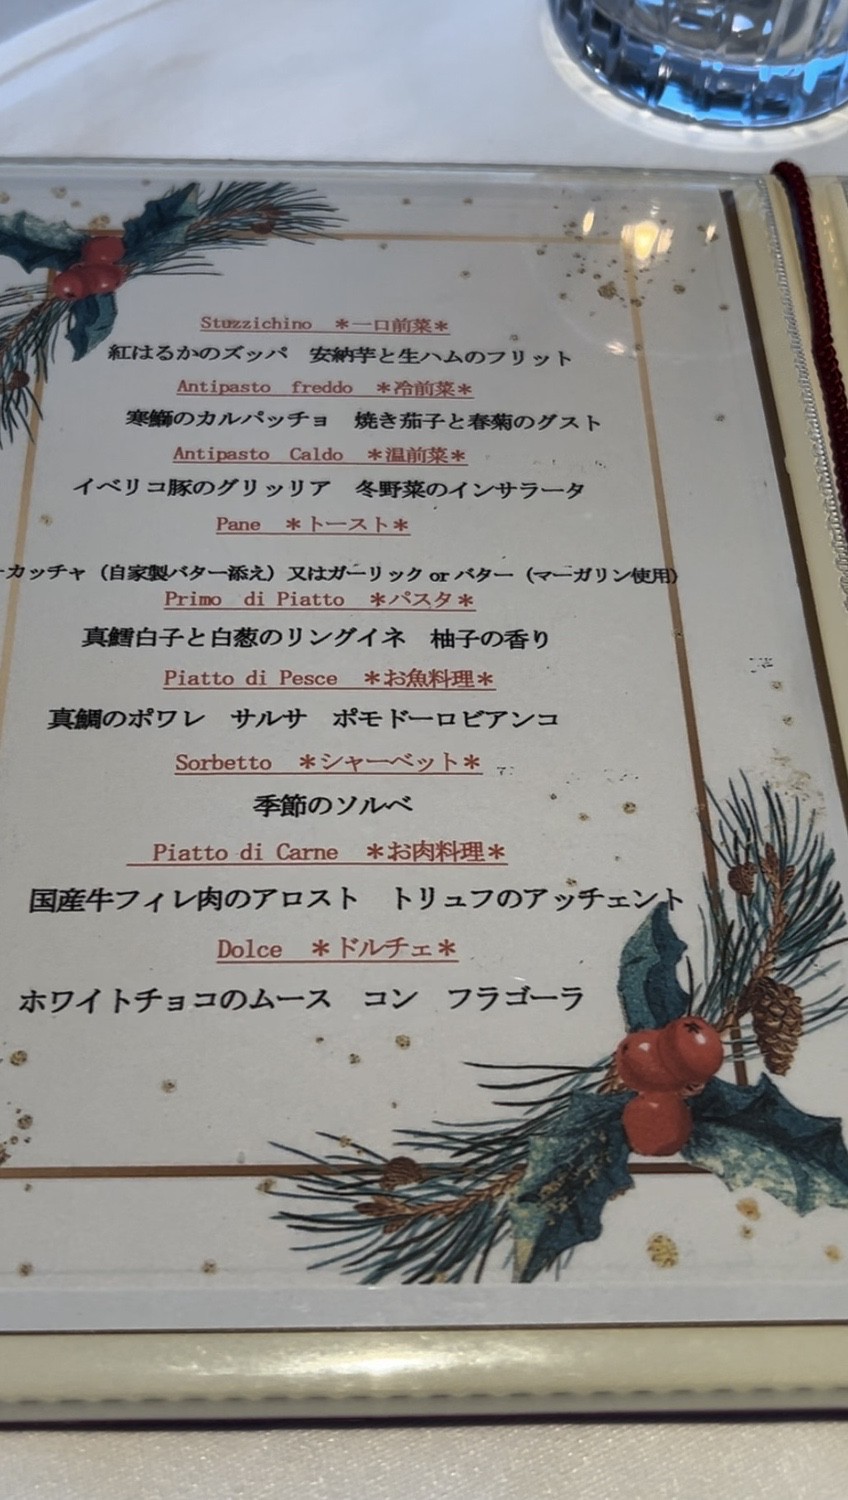 Stuzzichino ＊一口前菜＊
紅はるかのズッパ 安納芋と生ハムのフリット
Antipasto freddo ＊冷前菜＊
寒鰤のカルパッチョ 焼き茄子と春菊のグスト
Antipasto Caldo ＊温前菜＊
イベリコ豚のグリッリア 冬野菜のインサラータ
Pane ＊トースト＊
ーカッチャ（自家製バター添え）又はガーリック or バター（マーガリン使用）
Primo di Piatto ＊パスタ＊
真鱈白子と白葱のリングイネ 柚子の香り
Piatto di Pesce ＊お魚料理＊
真鯛のポワレ サルサ ポモドーロビアンコ
Sorbetto ＊シャーベット＊
季節のソルベ
Piatto di Carne ＊お肉料理＊
国産牛フィレ肉のアロスト トリュフのアッチェント
Dolce ＊ドルチェ＊
ホワイトチョコのムース コン フラゴーラ